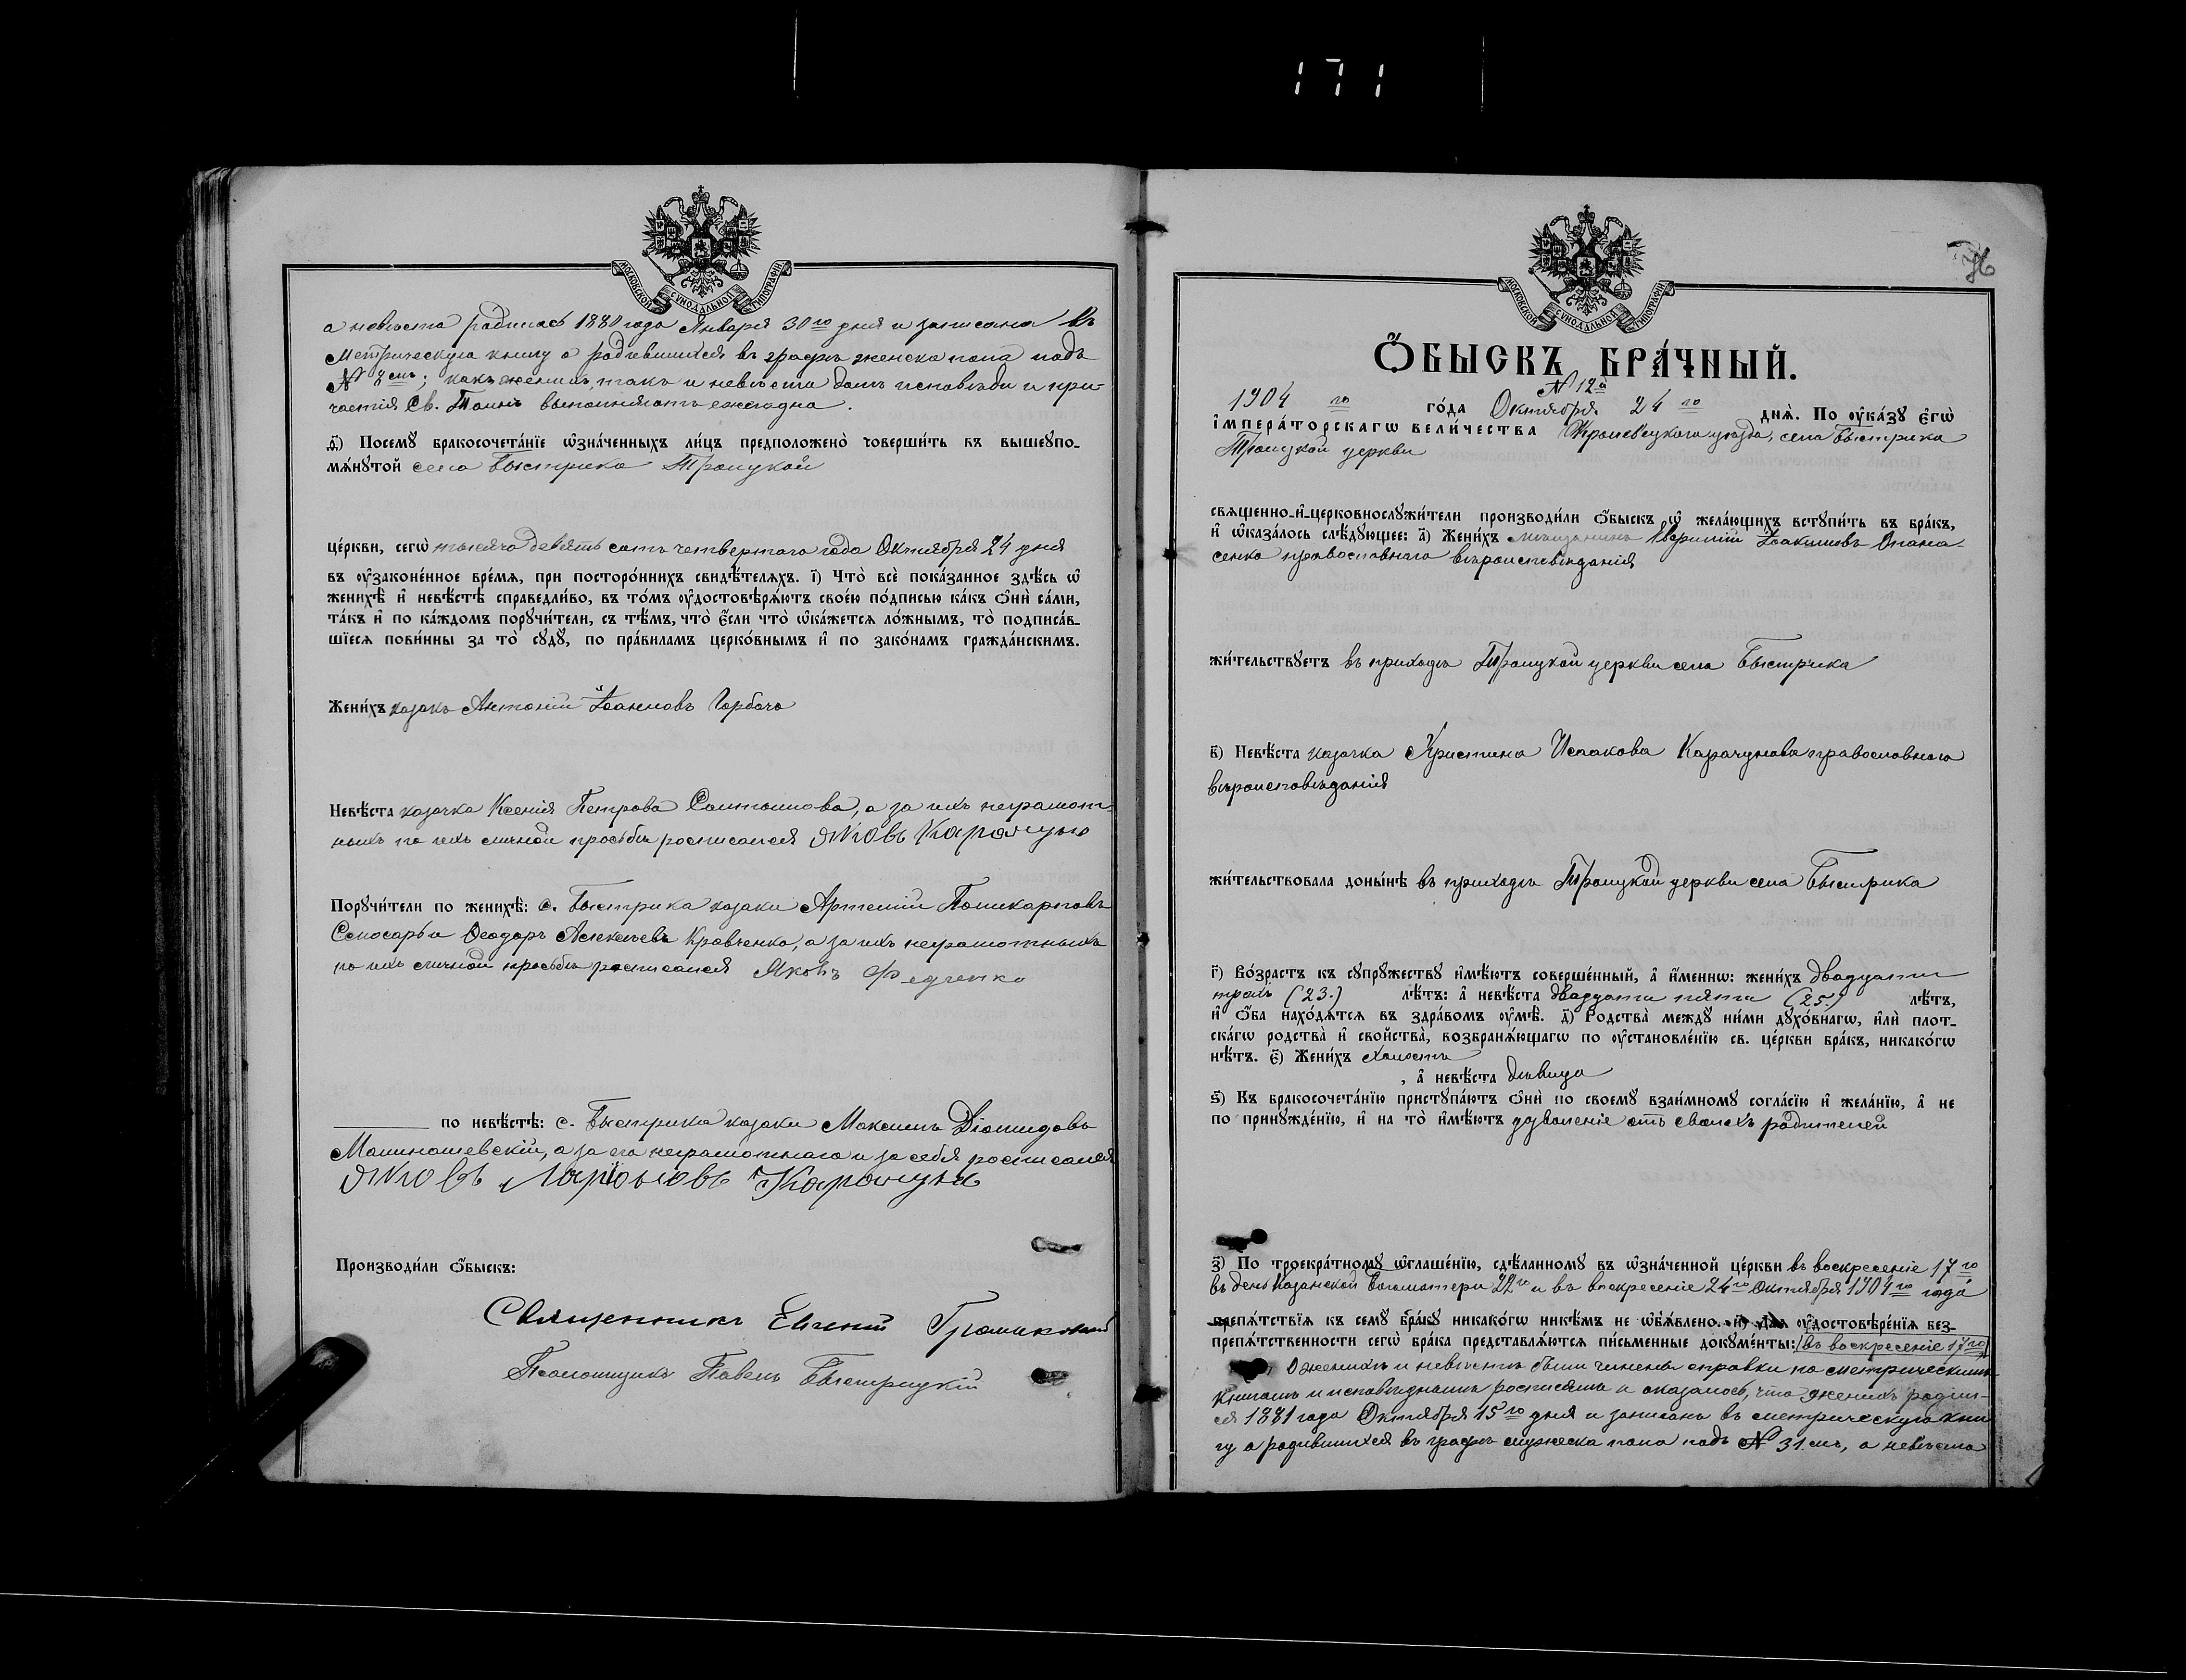 171
МОСКОВСКОЙ СѴНОДАЛЬНОЙ ТИПОГРАФІИ
а невѣста родилась 1880 года Января 30го дня и записана въ
метрическую книгу о родившихся въ графѣ женска пола подъ
№ 8мъ; какъ женихъ, такъ и невѣста долгъ исповѣди и при-
частія Св. Таинъ выполняютъ ежегодно.
ѳ҃) Посемꙋ̀ бракосочета́нїе ѡ҆зна́ченныхъ ли́цъ предположено̀ соверши́ть въ вышеꙋпо-
мѧ́нꙋтой села Быстрика Троицкой
це́ркви, сегѡ̀ тысяча девятьсотъ четвертаго года Октября 24 дня
въ ᲂу҆зако́ненное вре́мѧ, при посторо́ннихъ свидѣ́телѧхъ. і҃) Что̀ всѐ пока́занное здѣ́сь ѡ҆
женихѣ̀ и҆ невѣ́стѣ справедли́во, въ то́мъ ᲂу҆достовѣрѧ́ютъ свое́ю по́дписью ка́къ ѻ҆нѝ са́ми,
та́къ и҆ по ка́ждомъ порꙋчи́тели, съ тѣ́мъ, что̀ є҆́сли что̀ ѡ҆ка́жетсѧ ло́жнымъ, то̀ подписа́в-
шїесѧ пови́нны за то̀ сꙋдꙋ̀, по пра́виламъ церко́внымъ и҆ по зако́намъ гражда́нскимъ.
Жени́хъ казакъ Антоній Іоанновъ Горбачъ
Невѣ́ста казачка Ксенія Петрова, а за ихъ неграмот-
ныхъ по ихъ личной просьбѣ росписался Яковъ Карачунъ
Порꙋчи́тели по женихѣ̀: с. Быстрика казаки Артемій Поликарповъ
Слюсарь и Ѳеодоръ Алексѣевъ Кравченко, а за ихъ неграмотныхъ
по ихъ личной просьбѣ росписался Яковъ Федченко
по невѣ́стѣ: с. Быстрика казаки Максимъ Діомидовъ
Малишевскій, а за его неграмотнаго и за себя росписался
Яковъ Ларіоновъ Карачунъ
Производи́ли ѻ҆́быскъ:
Священникъ Евгеній Громыковскій
Псаломщикъ Павелъ Быстрицкій
МОСКОВСКОЙ СѴНОДАЛЬНОЙ ТИПОГРАФІИ
76
Ѻ҆́БЫСКЪ БРА́ЧНЫЙ.
№ 12й
1904го го́да Октября 24го днѧ̀. По ᲂу҆ка́зꙋ є҆гѡ̀
і҆мпера́торскагѡ вели́чества Кролевецкаго уѣзда, села Быстрика
Троицкой церкви
свѧщенно-и҆-церковнослꙋжи́тели производи́ли ѻ҆́быскъ ѡ҆ жела́ющихъ встꙋпи́ть въ бра́къ,
и҆ ѡ҆каза́лось слѣ́дꙋющее: а҃) Жени́хъ мѣщанинъ Іоакимовъ Опана-
сенко православнаго вѣроисповѣданія
жи́тельствꙋетъ въ приходѣ Троицкой церкви села Быстрика
в҃) Невѣ́ста казачка Христина Исаакова Карачунова православнаго
вѣроисповѣданія
жи́тельствовала доны́нѣ въ приходѣ Троицкой церкви села Быстрика
г҃) Во́зрастъ къ сꙋпрꙋ́жествꙋ и҆мѣ́ютъ соверше́нный, а҆ и҆́меннѡ: жени́хъ двадцати
трехъ (23.) лѣ́тъ: а҆ невѣ́ста двадцати пяти (25.) лѣ́тъ,
и҆ ѻ҆́ба нахо́дѧтсѧ въ здра́вомъ ᲂу҆мѣ̀. д҃) Родства̀ междꙋ ни́ми дꙋхо́внагѡ, и҆лѝ плот-
ска́гѡ родства̀ и҆ сво́йства, возбранѧ́ющагѡ по ᲂу҆становле́нїю св. це́ркви бра́къ, никако́гѡ
нѣ́тъ. є҃) Жени́хъ холостъ
, а҆ невѣ́ста дѣвица
ѕ҃) Къ бракосочета́нїю пристꙋпа́ютъ ѻ҆нѝ по своемꙋ̀ взаи́мномꙋ согла́сїю и҆ жела́нїю, а҆ не
по принꙋжде́нїю, и҆ на то̀ и҆мѣ́ютъ дозволеніе отъ своихъ родителей
з҃) По троекра́тномꙋ ѡ҆глаше́нїю, сдѣ́ланномꙋ въ ѡ҆зна́ченной це́ркви въ воскресеніе 17го
въ день Казанской Богоматери 22го и въ воскресеніе 24го Октября 1904го года
препѧ́тствїѧ къ семꙋ̀ бра́кꙋ никако́гѡ никѣ́мъ не ѡ҆б̾ѧ́влено. и҃) Длѧ ᲂу҆достовѣре́нїѧ без-
препѧ́тственности сегѡ̀ бра́ка представлѧ́ютсѧ пи́сьменные докꙋме́нты: въ воскресеніе 17го
О женихѣ и невѣстѣ были чинены справки по метрическимъ
книгамъ и исповѣднымъ росписямъ и оказалось, что женихъ родил-
ся 1881 года Октября 15го дня и записанъ въ метрическую кни
гу о родившихся въ графѣ мужеска пола подъ № 31мъ, а невѣста